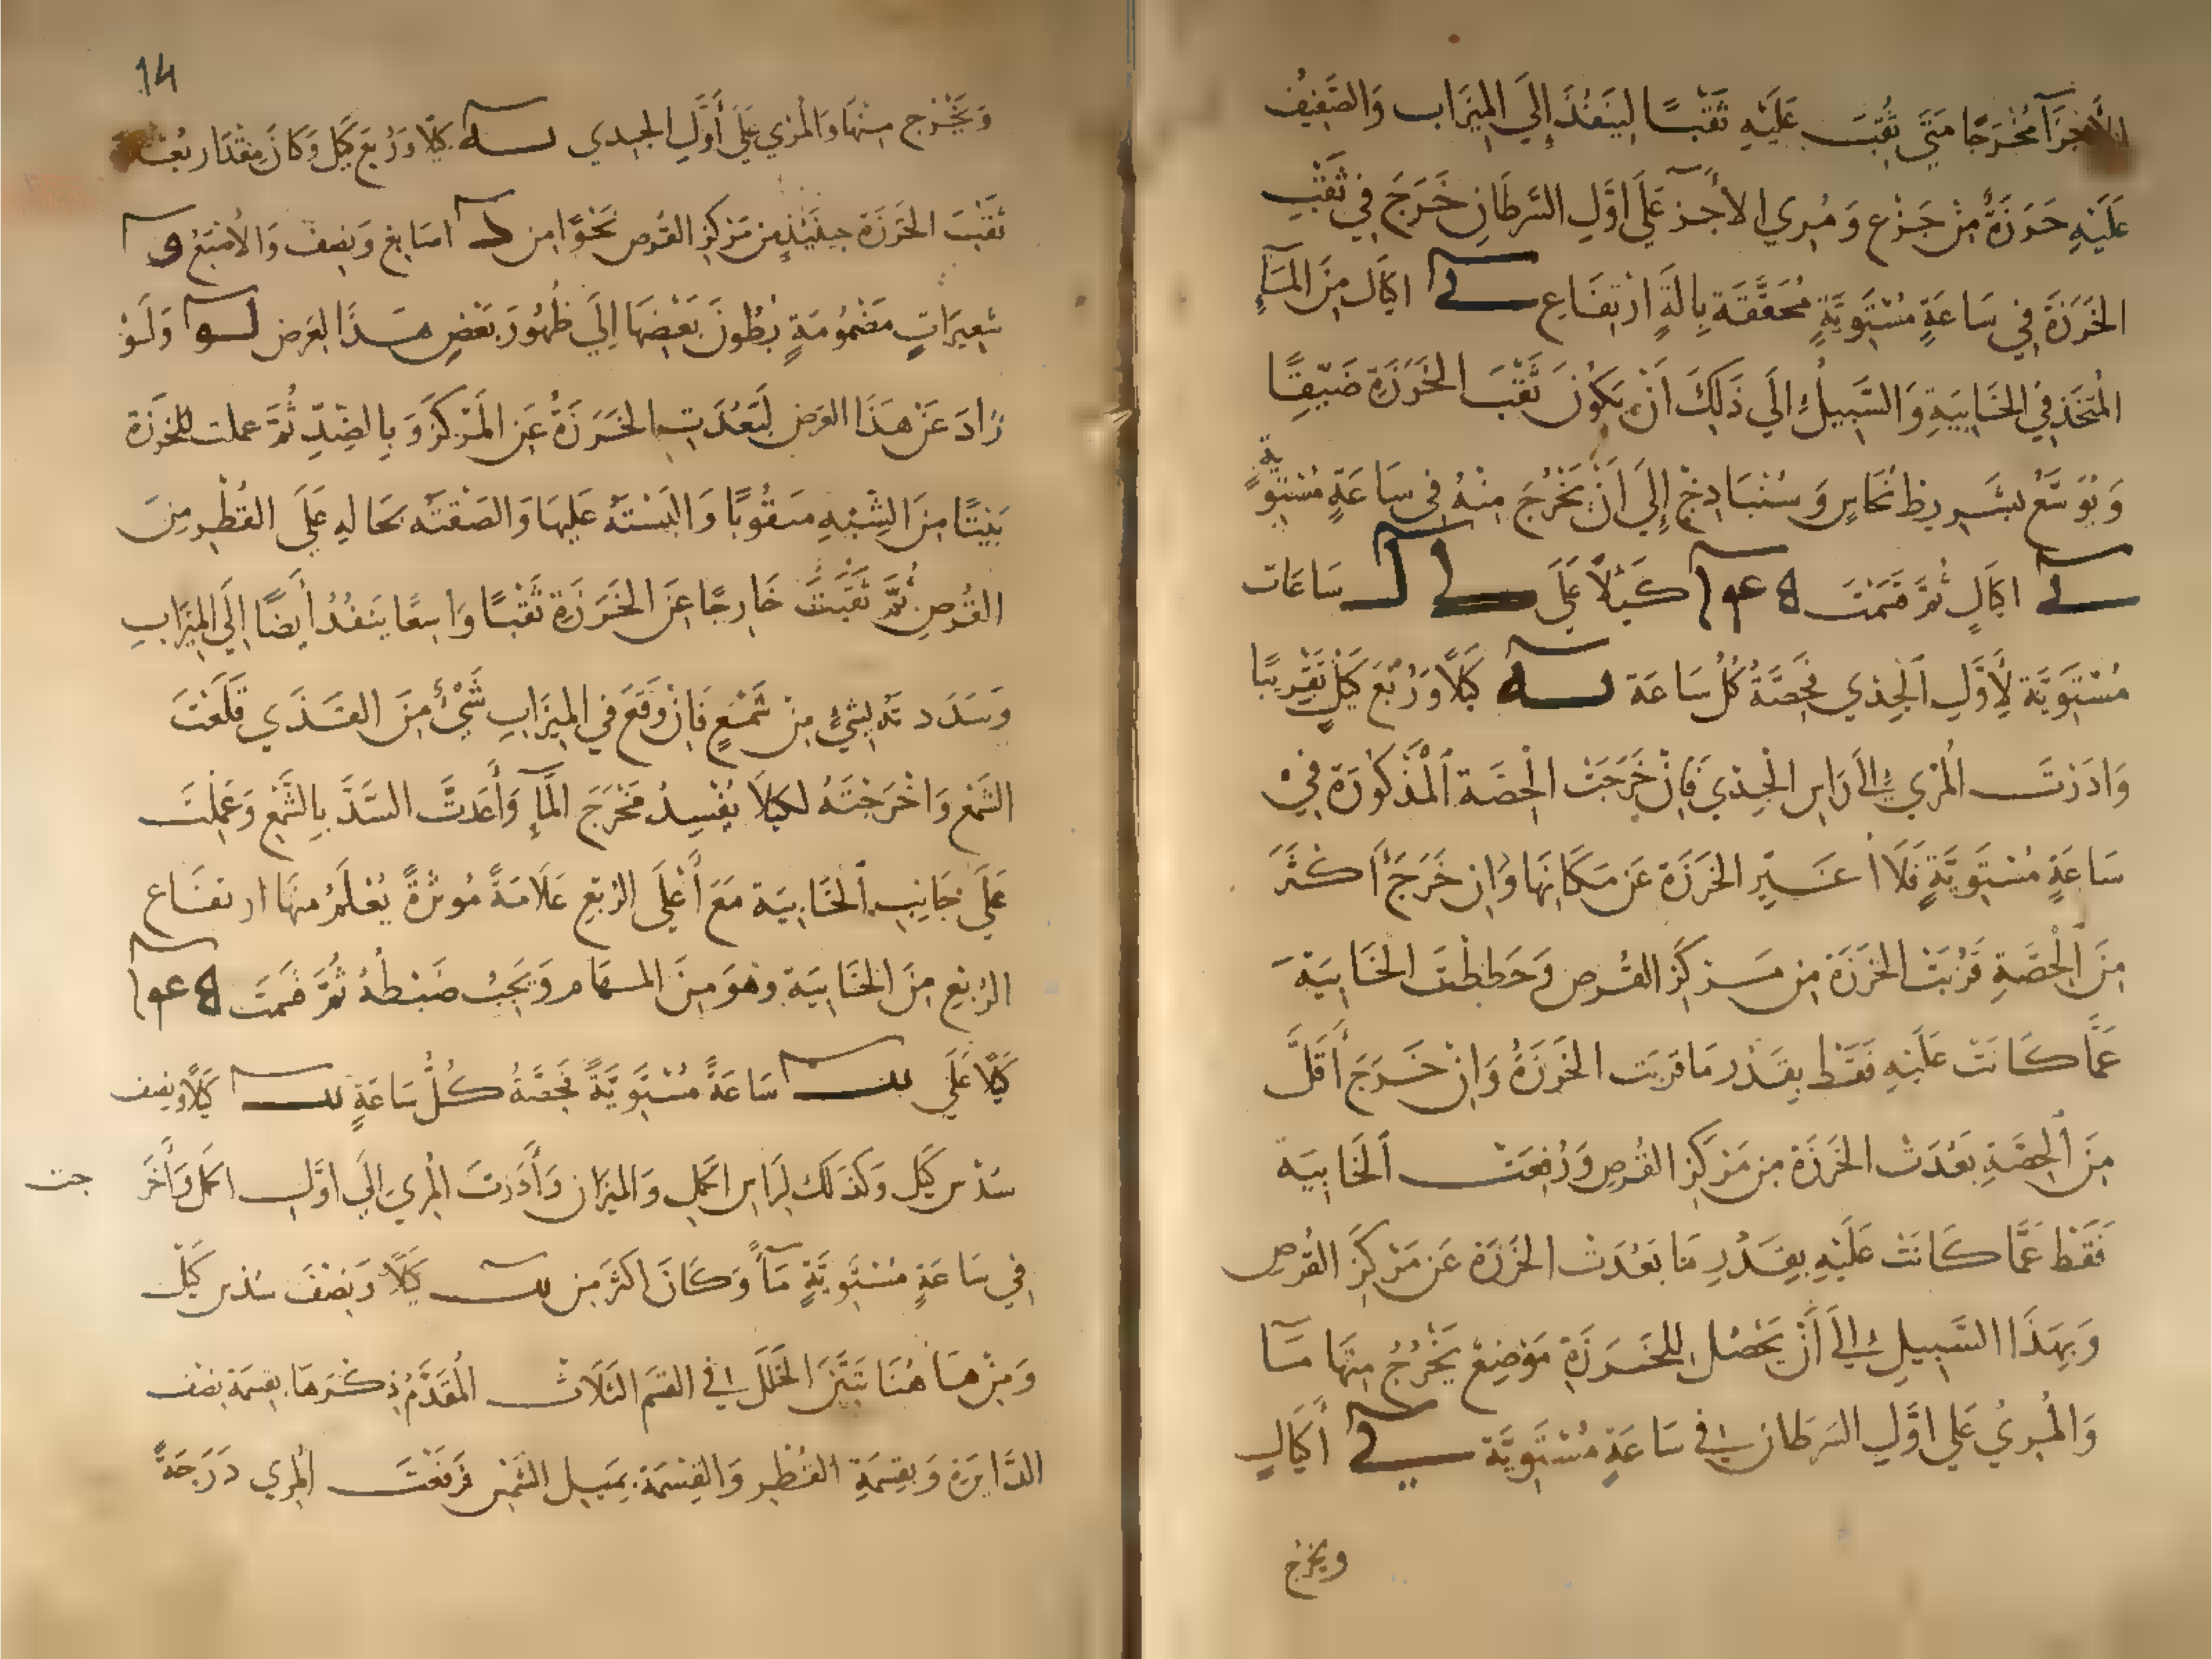 الأجزآ مُخْرَجًا مَتَى ثُقِبَ عَلَيْهِ ثَقْبًا لِيَنْفُذَ إِلَى المِيزَاب وَالصَّفِيف
عَلَيْهِ خَرَزَةٌ مِنْ جَزْع وَمُرِي الأجزآ عَلَى اوَّلِ السَرطَانِ خَرَجَ فِي ثَقْبِ
الخَرَزَةِ فِي سَاعَةٍ مُسْتَوِيَّةٍ مُحَقَّقَة بِالَةِ ارْتِفَاع اكيَال مِنَ المَآءِ
المُتَخَذِ فِي الخَابِيَةِ وَالسَّبِيلُ إِلَى ذَلِكَ أَنْ يَكُونَ ثَقْبَ الخَرَزَةِ ضَيِّقًا
وَيُوَسَّعُ بشريط نحَاسٍ وَسُنْبَادِجٍ إِلَى أَنْ يَخْرُجَ مِنْهُ فِي سَاعَةٍ مُسْتَوِيةٍ
اكيَالٍ ثُمَّ قَسَمْتَ كَيْلًا عَلَى سَاعَات
مُسْتَوِيَّة لِأَوَّلِ الْجَدْي فَحِصَّةُ كُلُّ سَاعَة كَيْلًا وَرُبْعَ كَيْلٍ تَقْرِيبًا
وَادَرْتَ المُري إِلَى رَاسِ الْجَدْي فَإِنْ خَرَجَتْ الْحِصَّة الْمَذْكُورَة فِي
سَاعَةٍ مُسْتَوِيَّةٍ فَلَا اغَيِّرِ الخَرَزَة عَنْ مَكَانِهَا وَإِن خَرَجَ أَكْثَرَ
مِنَ الْحِصَّةِ قَرُبَتْ الخَرَزَة مِن مَركَزِ القُرص وَحَططتَ الخَابِيَةَ
عَمَّا كَانَتْ عَلَيْهِ فَقَط بِقَدْرِ مَا قربَت الخَرَزَةُ وَانْ خَرَجَ أَقَلَّ
مِنَ الْحِصَّةِ بَعُدَتْ الخَرَزَة مِن مَرْكَزِ القُرص وَرُفِعَتْ الْخَابِيَة
فَقَطْ عَمَّا كَانَتْ عَلَيْهِ بِقَدْرِ مَا بَعُدَت الخَرَزَة عَن مَرْكَزِ القُرص
وَبِهَذَا السَّبِيلِ إِلَى أَنْ يَحْصُل لِلخَرَزَةِ مَوْضِعْ يَخْرُجُ مِنْهَا مَآ
وَالْمُرِيُ عَلَى اوَّلِ السَرطان فِي سَاعَةٍ مُسْتَوِيَّة أَكيَالٍ
ويخرج
14
وَيَخْرُج مِنْهَا وَالْمُرِي عَلَى أَوَّلِ الجدي كَيْلًا وَرُبْعَ كَيْل وَكَانَ مِقْدَار بُعْد
ثَقْبَ الخَرَزَة حِينَئِذٍ مِن مَرْكَزِ القُرص نَحْوًا مِن اصَابِع وَنِصف وَالاصْبَعُ
شعيرَاتٍ مَضْمُومَةٍ بُطُونَ بَعْضِهَا إِلَى ظُهُورَ بَعْضٍ هَذَا لغَرض وَلَوْ
زادَ عَنْ هَذَا الغَرض لَبَعُدَت الخَرَزَةُ عَنِ المَرْكَزَ وَبِالضِّدِّ ثُمَّ عملت للخرَزَة
بَيْتًا مِنَ الشِّبْهِ مثقُوبًا وَالْبَسْتَهُ عَليهَا وَالصَقْتَه بحَالهِ عَلَى القُطْرِ مِنَ
القُرصِ ثُمَّ ثَقَبْتَ خَارِجًا عَنَ الخَرَزَةِ ثَقْبًا وَاسِعًا يَنفُذُ أَيضًا إِلَى المِيزَابِ
وَسَدَدتَهُ بِشَيْءٍ مِنْ شَمْعٍ فَإِنْ وَقَعَ فِي المِيزَابِ شَيْءٌ مِنَ القَذَي قَلَعْتَ
الشَمْع وَاخْرَجْتَهُ لكَيلَا يُفْسِدُ مَخْرَجَ المَآءِ وَأَعَدتَّ السَّدَّ بِالشَّمْعِ وَعَمِلْتَ
عَلَى جَانِبِ الْخَابِيَة مَعَ أَعْلَى الرُبْعِ عَلَامَةً مُوثرةً يُعْلَمُ مِنهَا ارتفَاع
الرُبْعِ مِنَ الخَابِيَة وهوَ مِنَ المهَام وَيَجِبُ ضَبْطُهُ ثُمَّ قسمتَ
كَيْلًا عَلَى سَاعَةً مُسْتَوِيَّةً فَحِصَّةُ كُلُّ سَاعَةٍ كَيْلًا وَنِصف
سُدْس كَيْل وَكذلك لِرَاسِ الحَمَل وَالميزان وَأَدَرتَ المُري إِلَى اوَّلِ الحَمَل وَأَخْرَجت
فِي سَاعَةٍ مُسْتَوِيَّةٍ مَآءً وَكَانَ اكْثَرَ مِن كَيْلًا وَنِصْفَ سُدس كَيْل
وَمِنْ هَا هُنَا تَبَيَّنَ الخَلَلَ فِي القسَم الثَلَاث المُقَدَّمُ ذِكْرَهَا بِقِسمَة نِصف
الدَّايرَةِ وَبِقِسْمَةِ القُطْرِ وَالقِسْمَة بِمَيل الشَمْسِ فَرَفَعْتَ المُري دَرَجَةً